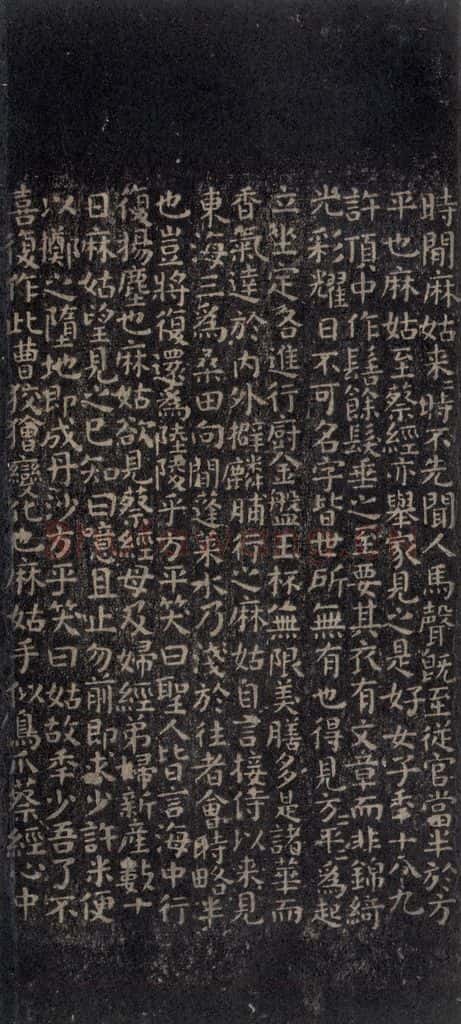 時間麻姑来時不先聞人馬聲既至從官當半於方
平也麻姑至蔡經亦舉家見之是好女子年十八九
許頂中作髻餘髮垂之至要其衣有文章而非錦綺
光彩耀日不可名字皆世所無有也得見方〻平〻為起
立坐定各進行厨金盤玉杯無限美膳多是諸華而
香氣達於内外擗麟脯行之麻姑自言接侍以来見
東海三為桑田向間蓬萊水乃淺於往者會時略半
也豈將復還為陸陵乎方平笑曰聖人皆言海中行
復揚塵也麻姑欲見蔡經母及婦經弟婦新產數十
日麻姑望見之已知曰噫且止勿前即求少許米便
以擲之墮地即成丹沙方平笑曰姑故年少吾了不
喜復作此曹狡獪變化也麻姑手似鳥爪蔡經心中